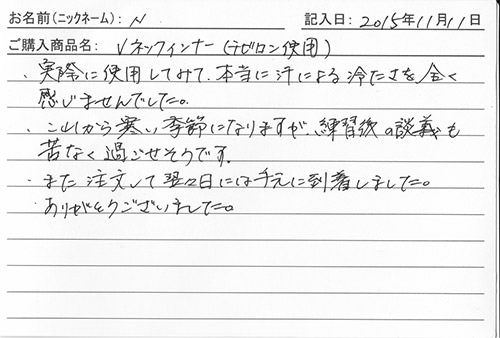 お名前(ニックネーム): N 記入日: 2015年11月11日
ご購入商品名: Vネックインナー(テビロン使用)
・実際に使用してみて、本当に汗による冷たさを全く
感じませんでした。
・これから寒い季節になりますが、練習後の談義も
苦なく過ごせそうです。
・また注文して翌々日には手元に到着しました。
ありがとうございました。